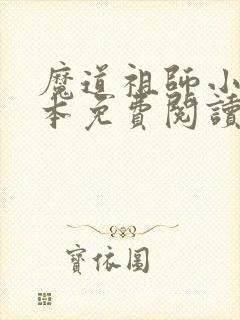 魔道祖師小
本免費閱讀
寶依圓